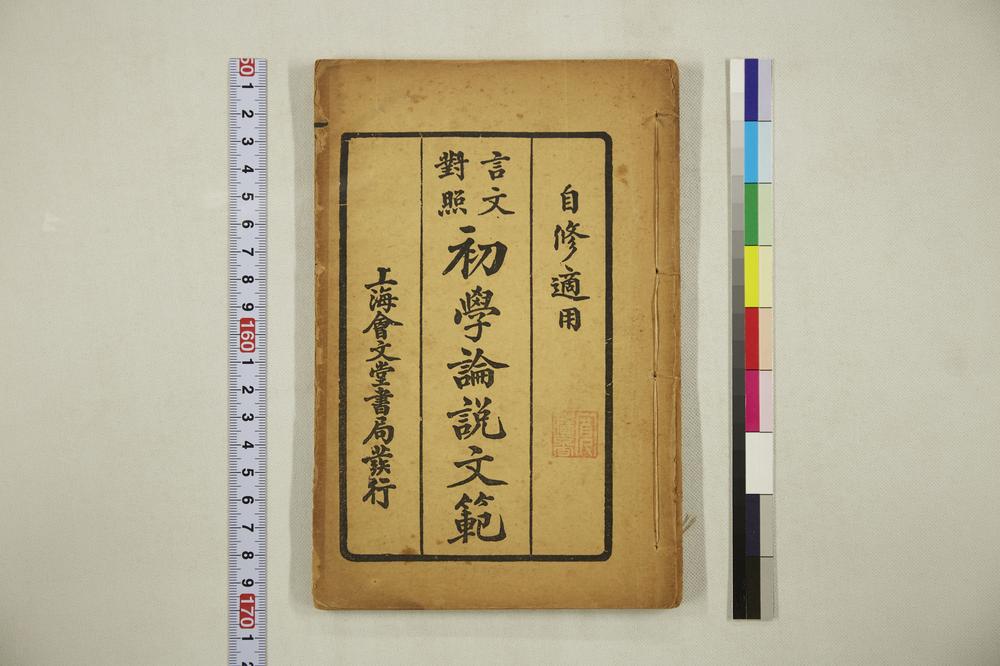 自修適用
言文對照
初學論説文範
上海會文堂書局發行
50
1
2
3
4
5
6
7
8
9
160
1
2
3
4
5
6
7
8
9
170
1
2